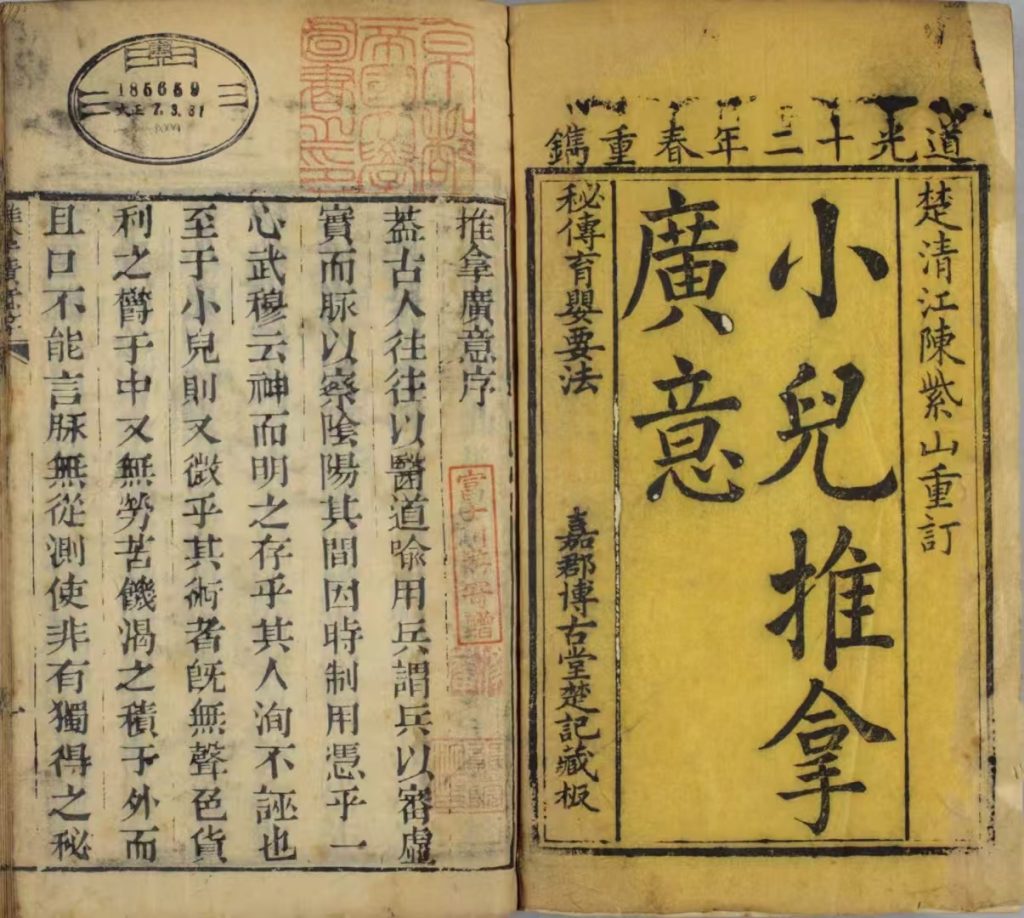 道光十二年春重鐫
楚清江陳紫山重訂
小兒推拿
廣意
秘傳育嬰要法
嘉郡博古堂楚記藏板
185659
大正 7.3.31
京都
帝國大學
圖書之印
推拿廣意序
蓋古人往往以醫道喻用兵謂兵以審虛
實而脉以察陰陽其間因時制用憑乎一
心武穆云神而明之存乎其人洵不誣也
至于小兒則又微乎其術者旣無聲色貨
利之欝于中又無勞苦饑渴之積于外而
且口不能言脉無從測使非有獨得之秘
一